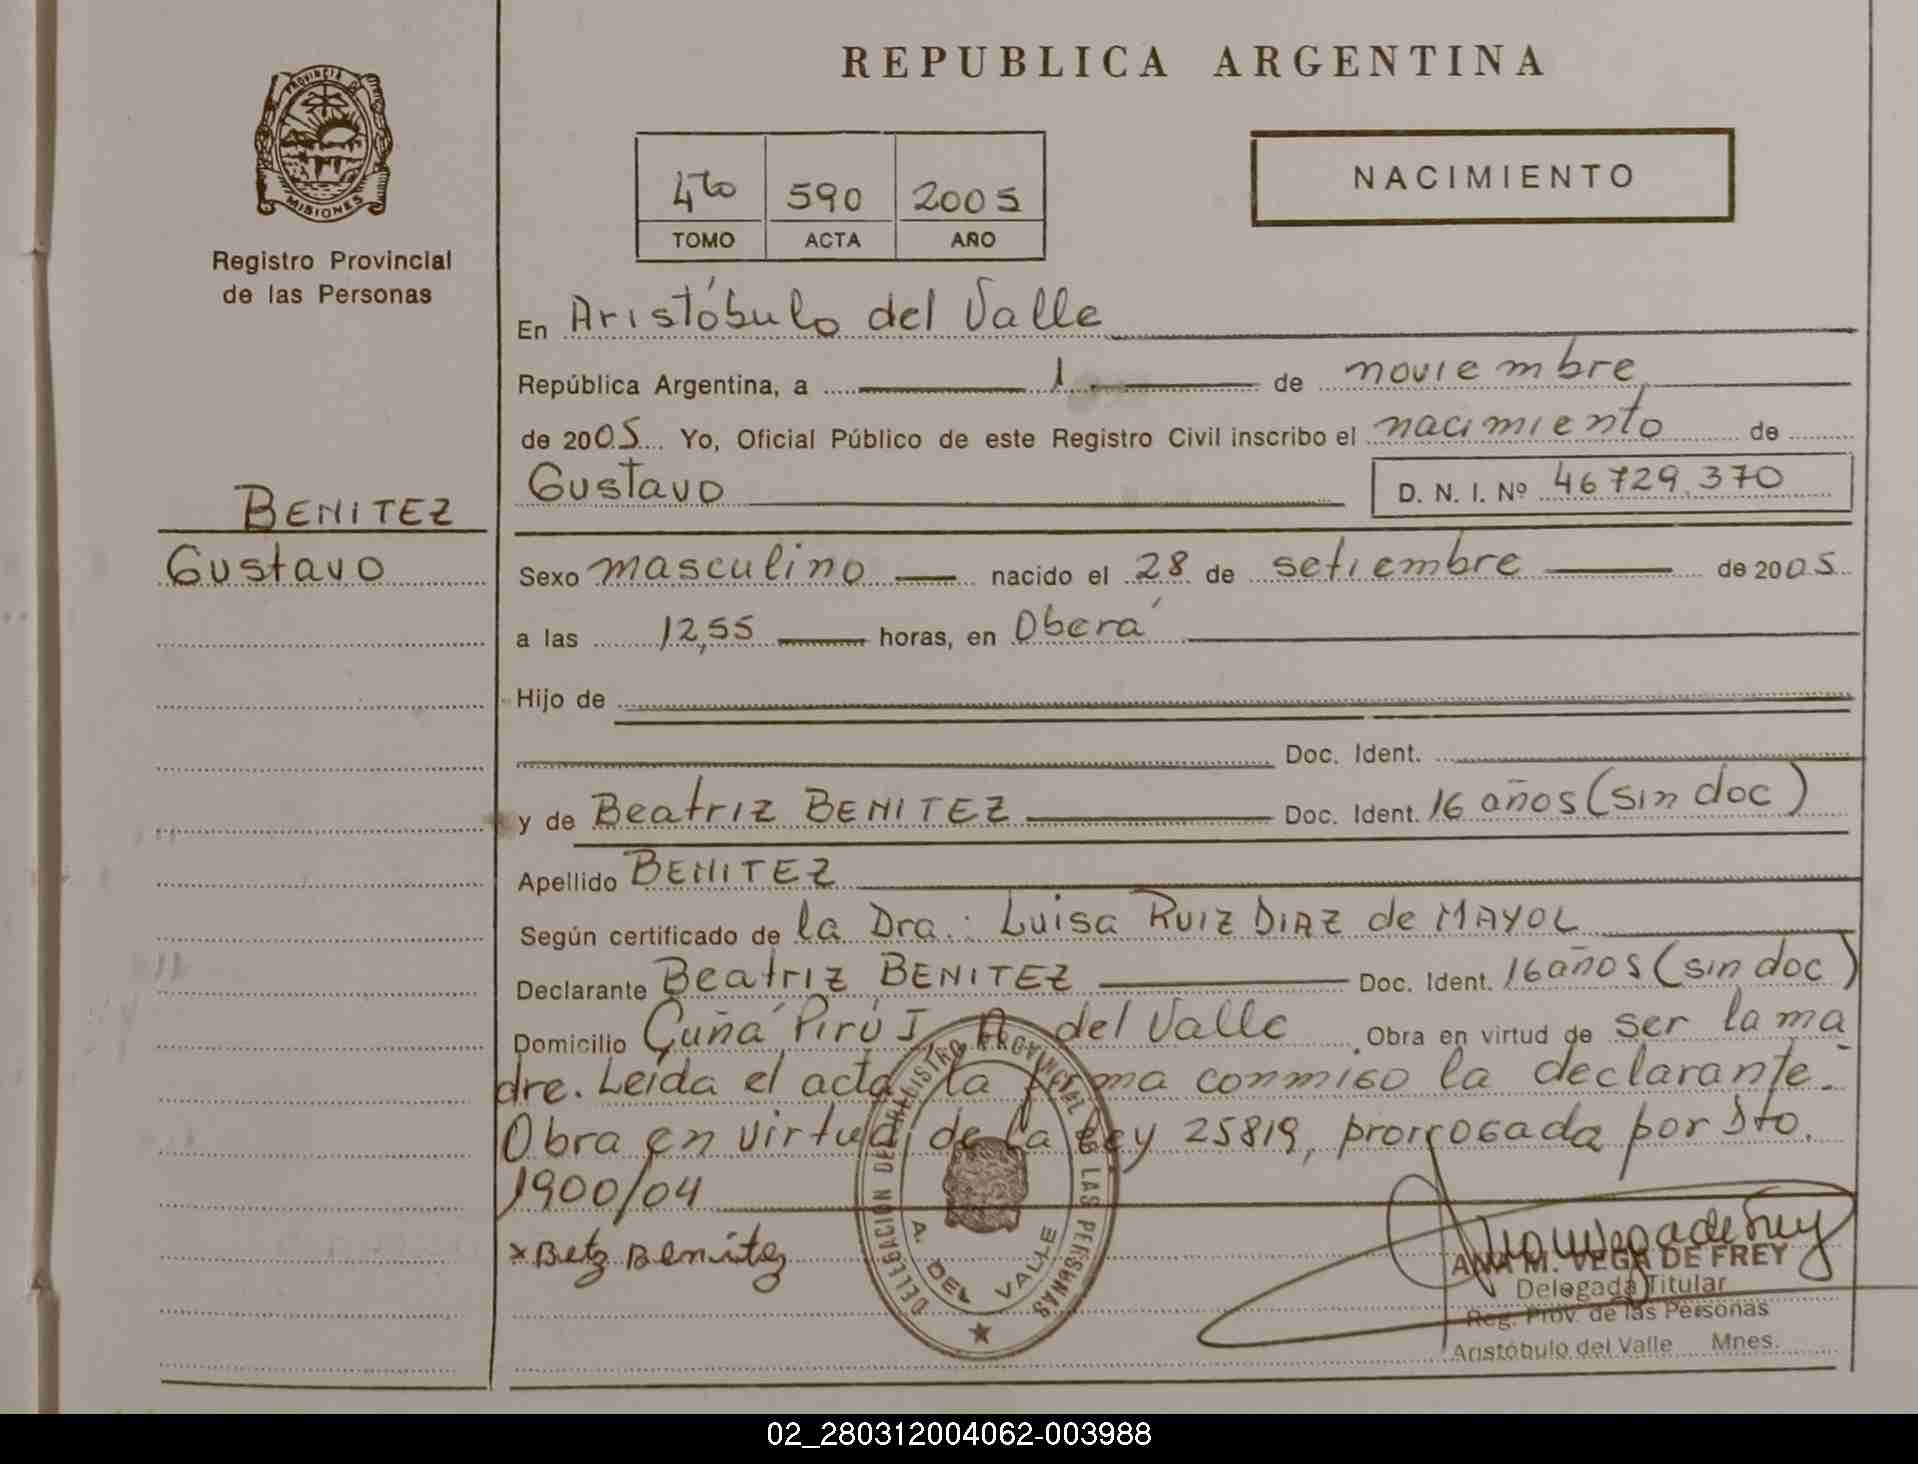 PROVINCIA DE
MISIONES
Registro Provincial
de las Personas
BENITEZ
Gustavo
REPUBLICA ARGENTINA
4to 590 2005
TOMO ACTA AÑO
NACIMIENTO
En Aristóbulo del Valle
República Argentina, a 1 de noviembre
de 2005 Yo, Oficial Público de este Registro Civil inscribo el nacimiento de
Gustavo D. N. I. Nº 46729.370
Sexo masculino nacido el 28 de setiembre de 2005
a las 12,55 horas, en Oberá
Hijo de
Doc. Ident.
y de Beatriz BENITEZ Doc. Ident. 16 años (sin doc)
Apellido BENITEZ
Según certificado de la Dra.: Luisa RUIZ DIAZ de MAYOL
Declarante Beatriz BENITEZ Doc. Ident. 16 años (sin doc)
Domicilio Cuña Pirú I A. del Valle. Obra en virtud de ser la ma
dre. Leída el acta la firma conmigo la declarante.-
Obra en virtud de la Ley 25819, prorrogada por Dto.
1900/04
x Betz Benitez
DELEGACION DEL REGISTRO PROVINCIAL DE LAS PERSONAS
A. DEL VALLE
ANA M. VEGA DE FREY
Delegada Titular
Reg. Prov. de las Personas
Aristóbulo del Valle Mnes.
02_280312004062-003988